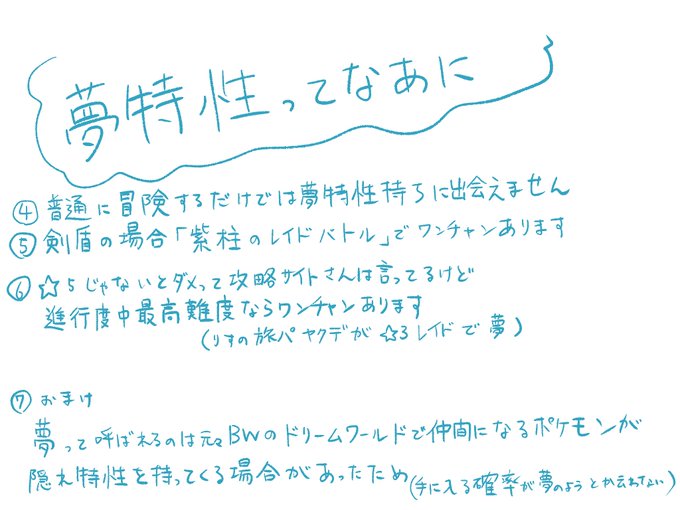 夢特性ってなあに
④ 普通に冒険するだけでは夢特性持ちに出会えません
⑤ 剣盾の場合「紫柱のレイドバトル」でワンチャンあります
⑥ ☆5じゃないとダメって攻略サイトさんは言ってるけど
進行度中最高難度ならワンチャンあります
(りすの旅パヤクデが☆3レイドで夢)
⑦ おまけ
夢って呼ばれるのは元々BWのドリームワールドで仲間になるポケモンが
隠れ特性を持ってくる場合があったため(手に入る確率が夢のようとか云わない)